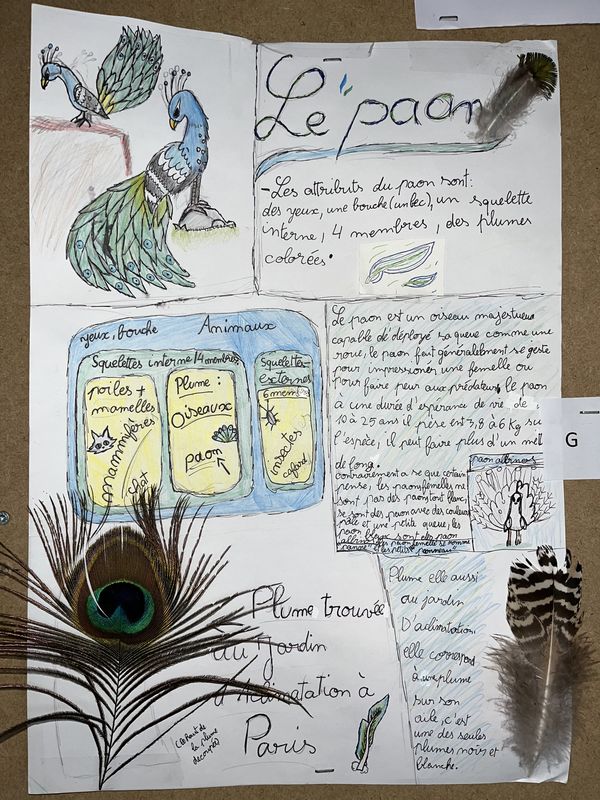 Le paon
-Les attributs du paon sont:
des yeux, une bouche (un bec), un squelette
interne, 4 membres, des plumes
colorées.
yeux, bouche Animaux
Squelettes interne 14 membres
poiles +
mamelles
mammifères
chat
Plume:
Oiseaux
paon
Squelette
externes
6 membres
insectes
cafard
Le paon est un oiseau majestueux
capable de déployé sa queue comme une
roue, le paon fait généralement se geste
pour impressioner une femelle ou
pour faire peur aux prédateurs, le paon
à une durée d'esperance de vie de
10 à 25 ans il pèse ent 3,8 à 6 kg su
l'espèce, il peut faire plus d'un mèt
de long.
contrairement a se que certain
pense, les paons femelles ne
sont pas des paons tout blanc,
se sont des paon avec des couleurs
pâle et une petite queue, les
paon blanc sont des paon
albinos
paon albinos
G
Plume trouvée
au jardin
d'Aclimatation à
Paris
(Le haut de
la plume
decoupée)
Plume elle aussi
au jardin
D'aclimatation.
elle correspond
à une plume
sur son
aile, c'est
une des seules
plumes noirs et
blanche.